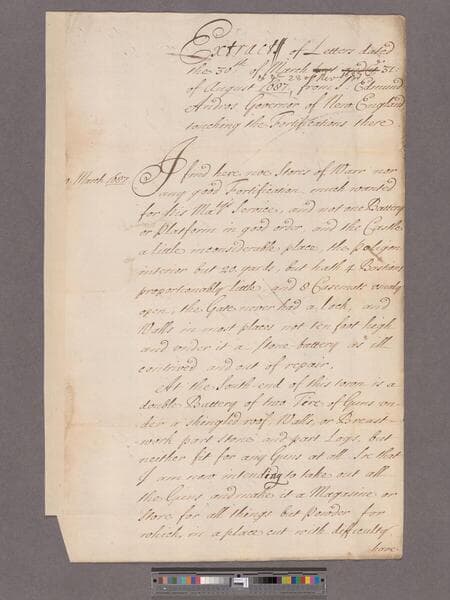 Extracts of Letters dated
the 30th of March and ye 31
& ye 28 of Novr 1687
of August 1687, from Sr Edmund
Andros Governor of New England
touching the Fortifications there
March 1687
I find here noe Stores of Warr nor
any good Fortification much wanted
for his Matys Service, and not one Battery
or Platform in good order, and the Castle
a little inconsiderable place, the poligon
interior but 20 yards, but hath 4 Bastions
proportionably little and 8 Casemats
open, the Gate never had a lock, and
Walls in most places not ten foot high
and under it a Stone battery as ill
contrived and out of repair.
At the South end of this town is a
double Battery of two Tire of Guns un-
der a shingled roof, Walls, or Breast-
work part Stone and part Logs, but
neither fit for any Guns at all. So that
I am now intending to take out all
the Guns, and make it a Magazine or
Store for all things but Powder for
which, in a place cut with difficulty
have